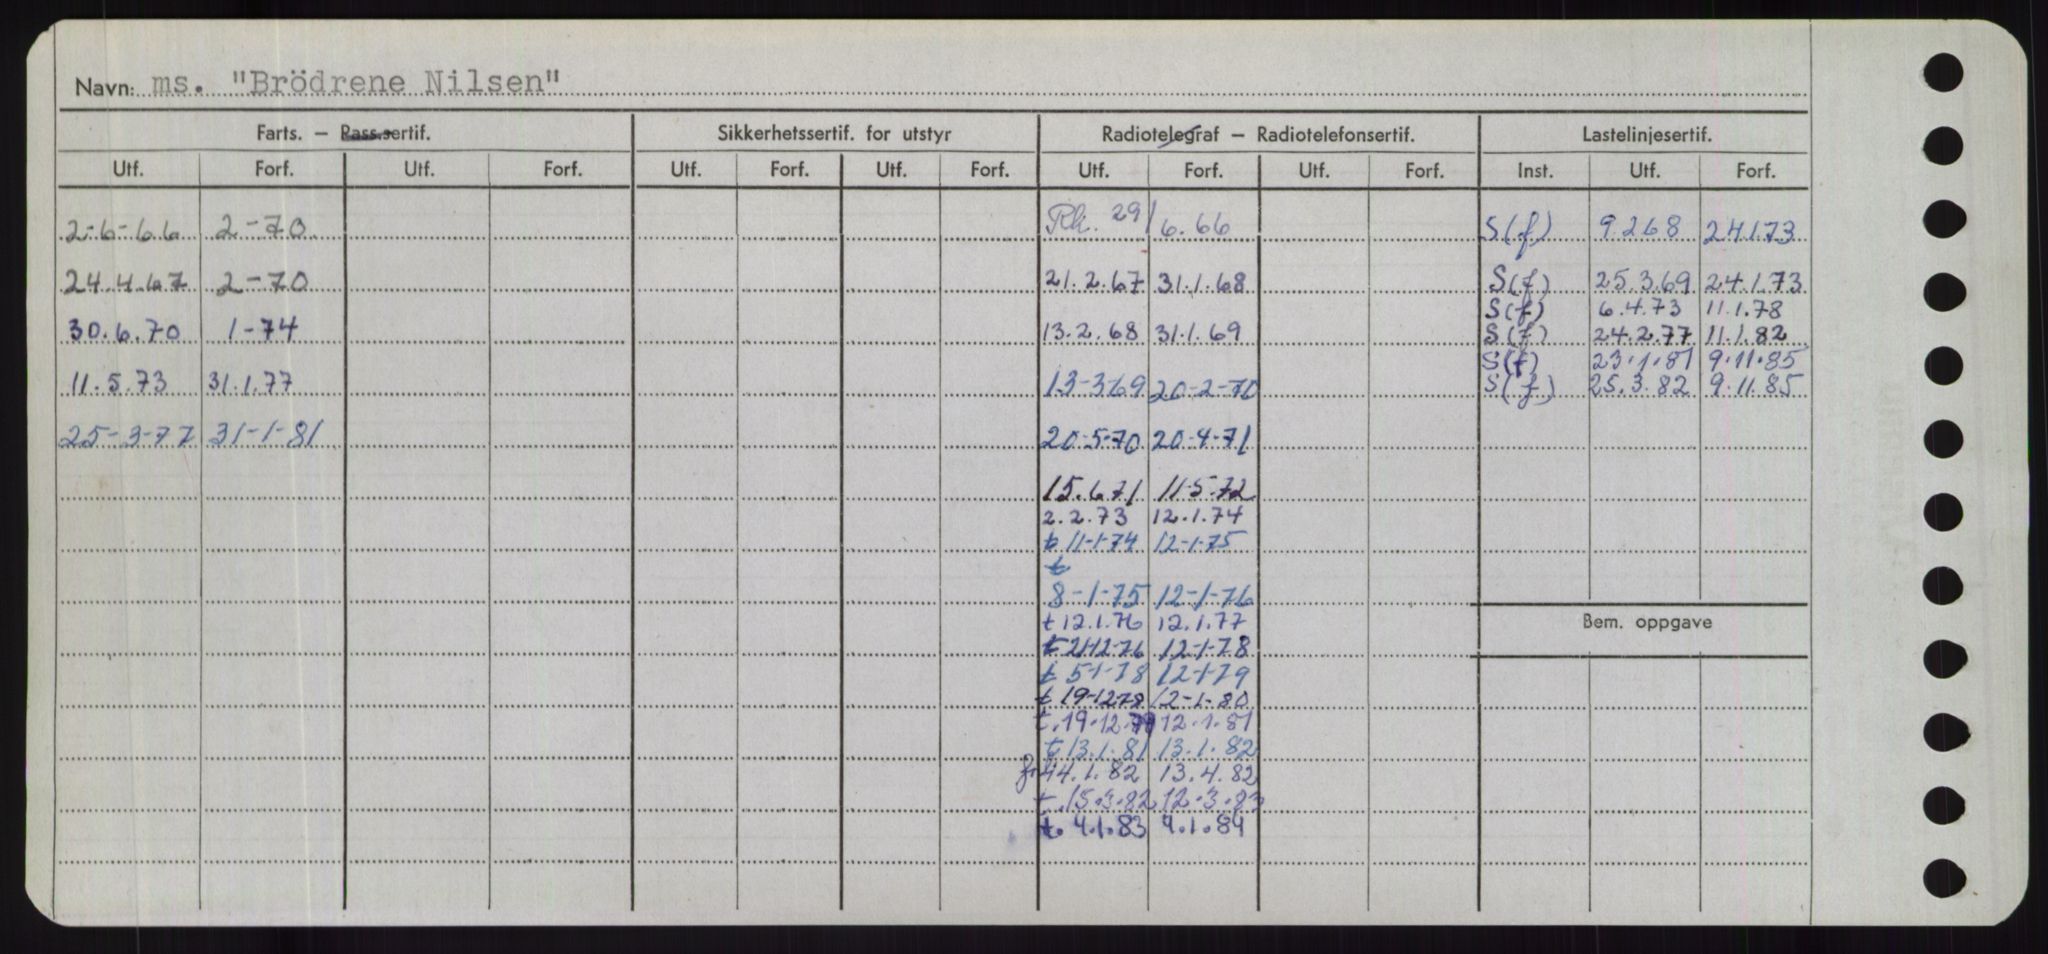 Navn: ms. "Brödrene Nilsen"
Farts. — Pass.sertif. Sikkerhetssertif. for utstyr Radiotelegraf — Radiotelefonsertif. Lastelinjesertif.
Utf. Forf. Utf. Forf. Utf. Forf. Utf. Forf. Utf. Forf. Utf. Forf. Inst. Utf. Forf.
2-6-66 2-70 Rk. 29/6.66 S(f) 9.268 24.1.73
24.4.67 2-70 21.2.67 31.1.68 S(f) 25.3.69 24.1.73
S(f) 6.4.73 11.1.78
30.6.70 1-74 13.2.68 31.1.69 S(f) 24.2.77 11.1.82
S(f) 23.1.81 9.11.85
11.5.73 31.1.77 13-369 20-2-70 S(f) 25.3.82 9.11.85
25-3-77 31-1-81 20-5-70 20-4-71
15.671 11-5.72
2.2.73 12.1.74
t 11-1-74 12-1-75
t
8-1-75 12-1-76
t 12.1.76 12.1.77 Bem. oppgave
t 21-12-76 12-1-78
t 5-1-78 12-1-79
t 19-1278 12-1-80
t. 19.12.79 12.1.81
t 13.1.81 13.1.82
14.1.82 13.4.82
t. 15.3.82 12.3.83
t. 4.1.83 4.1.84